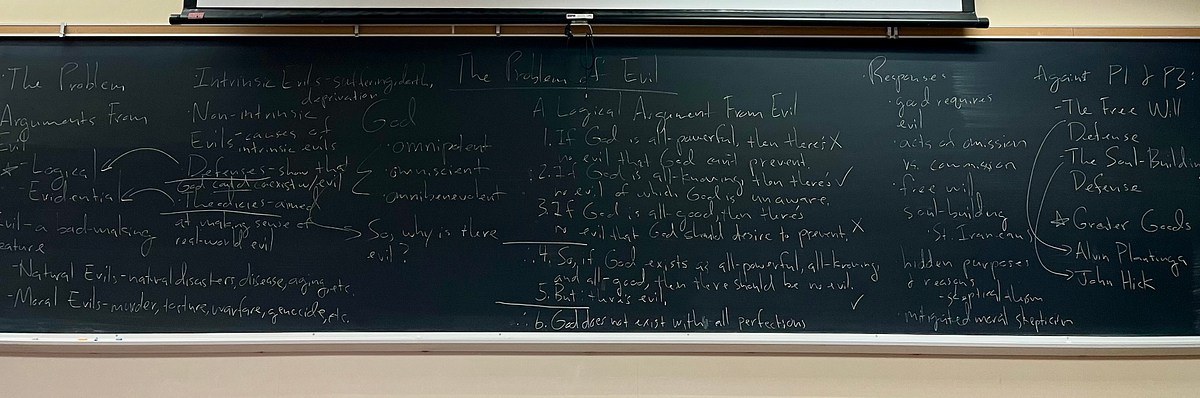 The Problem of Evil
· The Problem
Arguments From
Evil
- Logical
- Evidential
Evil - a bad-making
feature
- Natural Evils - natural disasters, disease, aging, etc.
- Moral Evils - murder, torture, warfare, genocide, etc.
· Intrinsic Evils - suffering, death,
deprivation
· Non-intrinsic
Evils - causes of
intrinsic evils
Defenses - show that
God could coexist w/ evil
· Theodicies - aimed
at making sense of
real-world evil
God
· omnipotent
· omniscient
omnibenevolent
So, why is there
evil?
A Logical Argument From Evil
1. If God is all-powerful, then there's X
no evil that God can't prevent.
2. If God is all-knowing, then there's ✓
no evil of which God is unaware.
3. If God is all-good, then there's
no evil that God should desire to prevent. X
∴ 4. So, if God exists as all-powerful, all-knowing
and all-good, then there should be no evil.
5. But there's evil. ✓
∴ 6. God does not exist with all perfections
· Responses
· good requires
evil
· acts of omission
vs. commission
· free will
soul-building
· St. Iranean
hidden purposes
& reasons
- skeptical theism
· mitigated moral skepticism
Against P1 & P3:
- The Free Will
Defense
- The Soul-Building
Defense
Greater Goods
Alvin Plantinga
John Hick